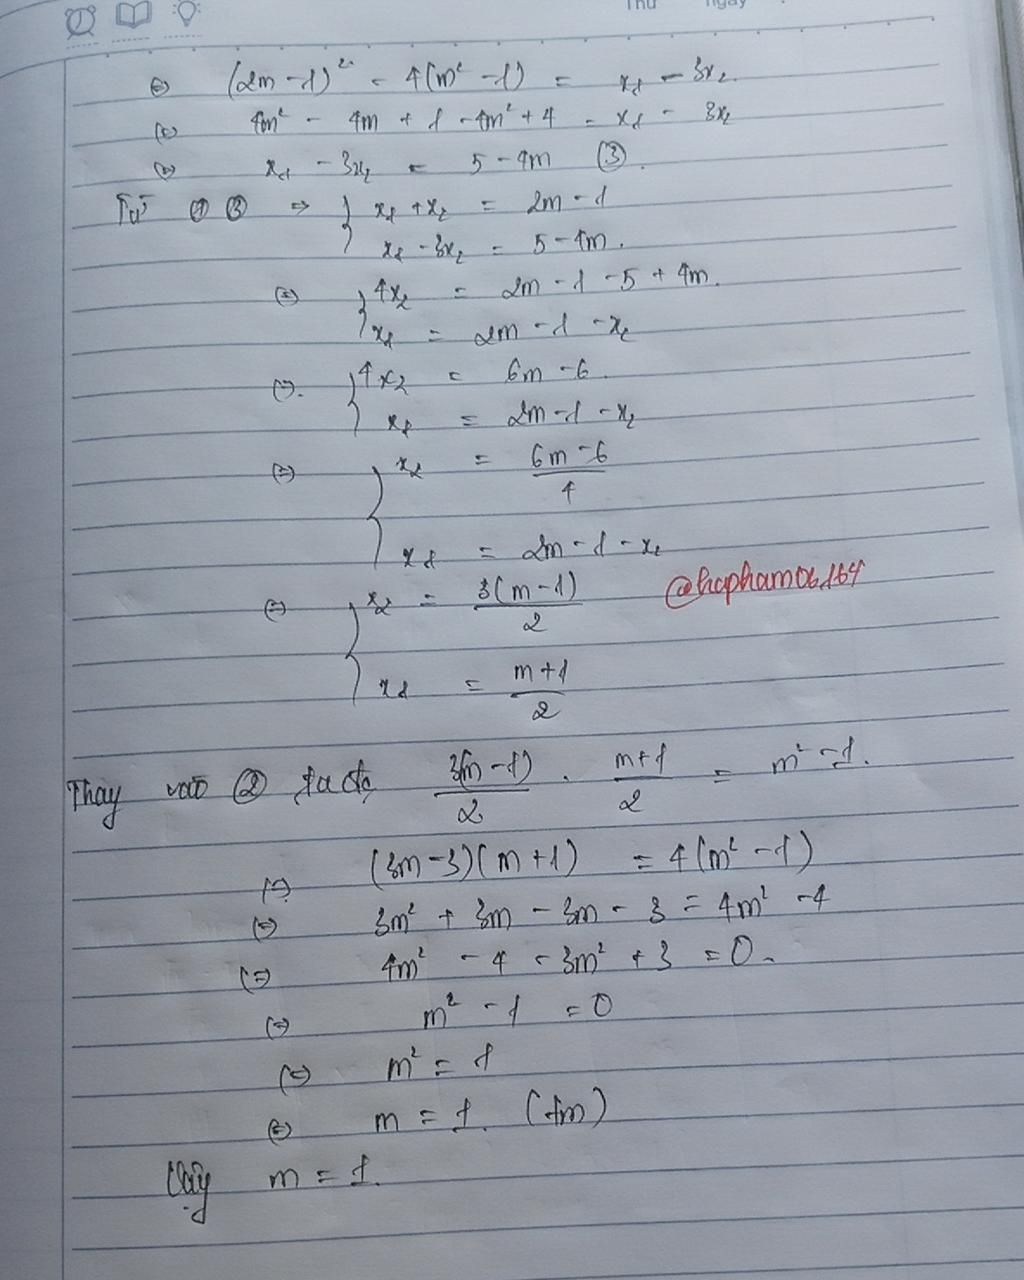 Thứ Ngày
⇔ (2m - 1)² - 4(m² - 1) = x₁ - 3x₂
⇔ 4m² - 4m + 1 - 4m² + 4 = x₁ - 3x₂
⇔ x₁ - 3x₂ = 5 - 4m ③.
Từ ① ③ ⇒ { x₁ + x₂ = 2m - 1
x₁ - 3x₂ = 5 - 4m.
⇔ { 4x₂ = 2m - 1 - 5 + 4m.
x₁ = 2m - 1 - x₂
⇔ { 4x₂ = 6m - 6.
x₁ = 2m - 1 - x₂
⇔ { x₂ = (6m - 6)/4
x₁ = 2m - 1 - x₂
⇔ { x₂ = 3(m - 1)/2
@hapham06164
x₁ = (m + 1)/2
Thay vào ② ta có 3(m - 1)/2 . (m + 1)/2 = m² - 1.
⇔ (3m - 3)(m + 1) = 4(m² - 1)
⇔ 3m² + 3m - 3m - 3 = 4m² - 4
⇔ 4m² - 4 - 3m² + 3 = 0.
⇔ m² - 1 = 0
⇔ m² = 1
⇔ m = 1. (tm)
Vậy m = 1.